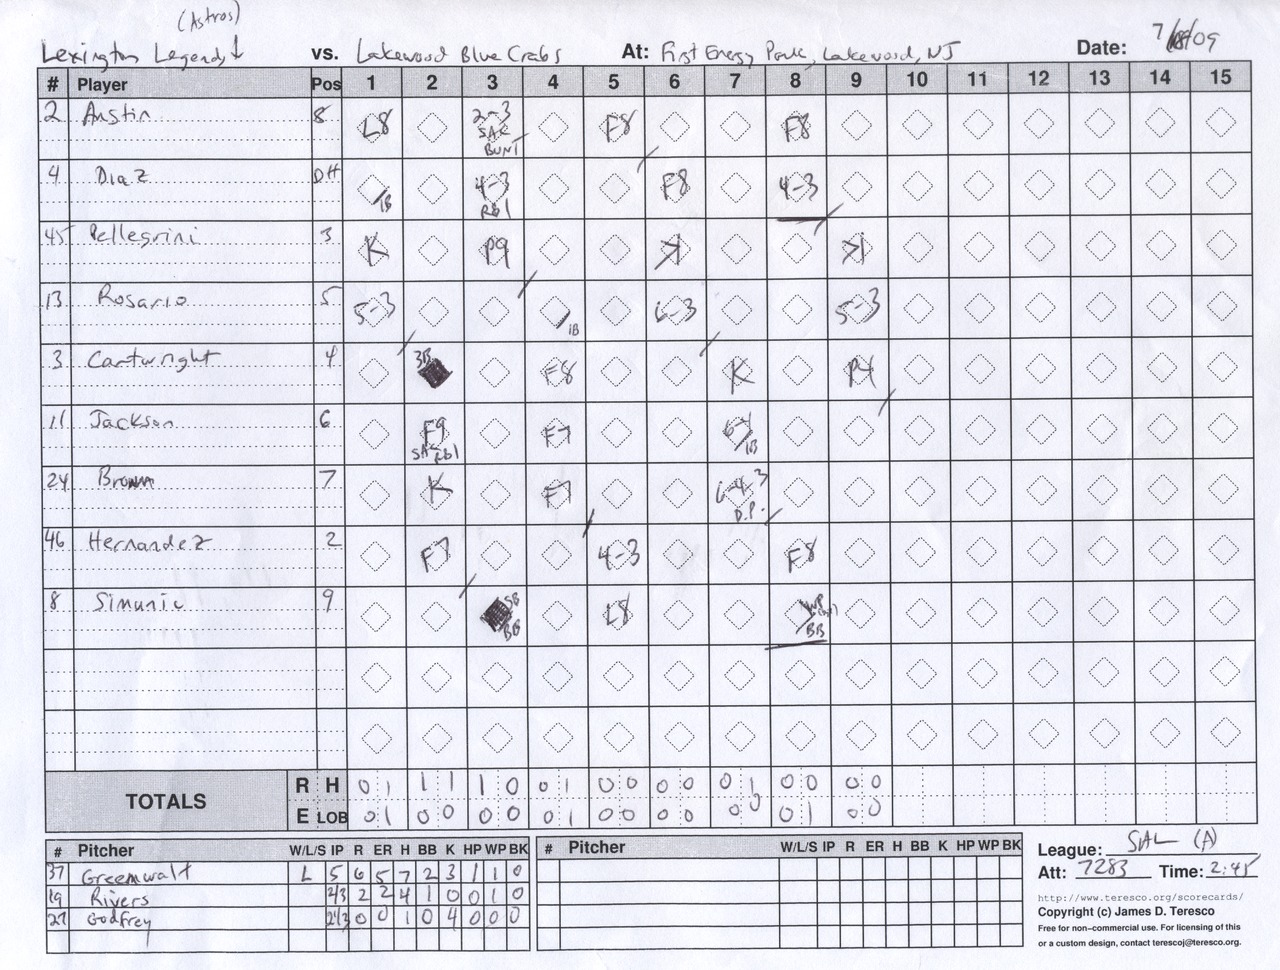 (Astros)
Lexington Legends vs. Lakewood Blue Crabs At: First Energy Park, Lakewood, NJ Date: 7/ /09
# Player Pos 1 2 3 4 5 6 7 8 9 10 11 12 13 14 15
2 Austin 8 L8 2-3 SAC BUNT F8 F8
4 Diaz DH 1B 4-3 RBI F8 4-3
45 Pellegrini 3 K P9 K K
13 Rosario 5 5-3 1B 6-3 5-3
3 Cartwright 4 3B F8 K P4
11 Jackson 6 F9 SAC RBI F7 6-4 1B
24 Brown 7 K F7 6-4-3 D.P.
46 Hernandez 2 F7 4-3 F8
8 Simunic 9 SB BB L8 WP BB
TOTALS
R H 0 1 1 1 1 0 0 1 0 0 0 0 0 1 0 0 0 0
E LOB 0 1 0 0 0 0 0 1 0 0 0 0 0 0 0 1 0 0
# Pitcher W/L/S IP R ER H BB K HP WP BK # Pitcher W/L/S IP R ER H BB K HP WP BK
37 Greenwalt L 5 6 5 7 2 3 1 1 0
19 Rivers 2/3 2 2 4 1 0 0 1 0
27 Godfrey 2 1/3 0 0 1 0 4 0 0 0
League: SAL (A)
Att: 7283 Time: 2:45
http://www.teresco.org/scorecards/
Copyright (c) James D. Teresco
Free for non-commercial use. For licensing of this
or a custom design, contact terescoj@teresco.org.